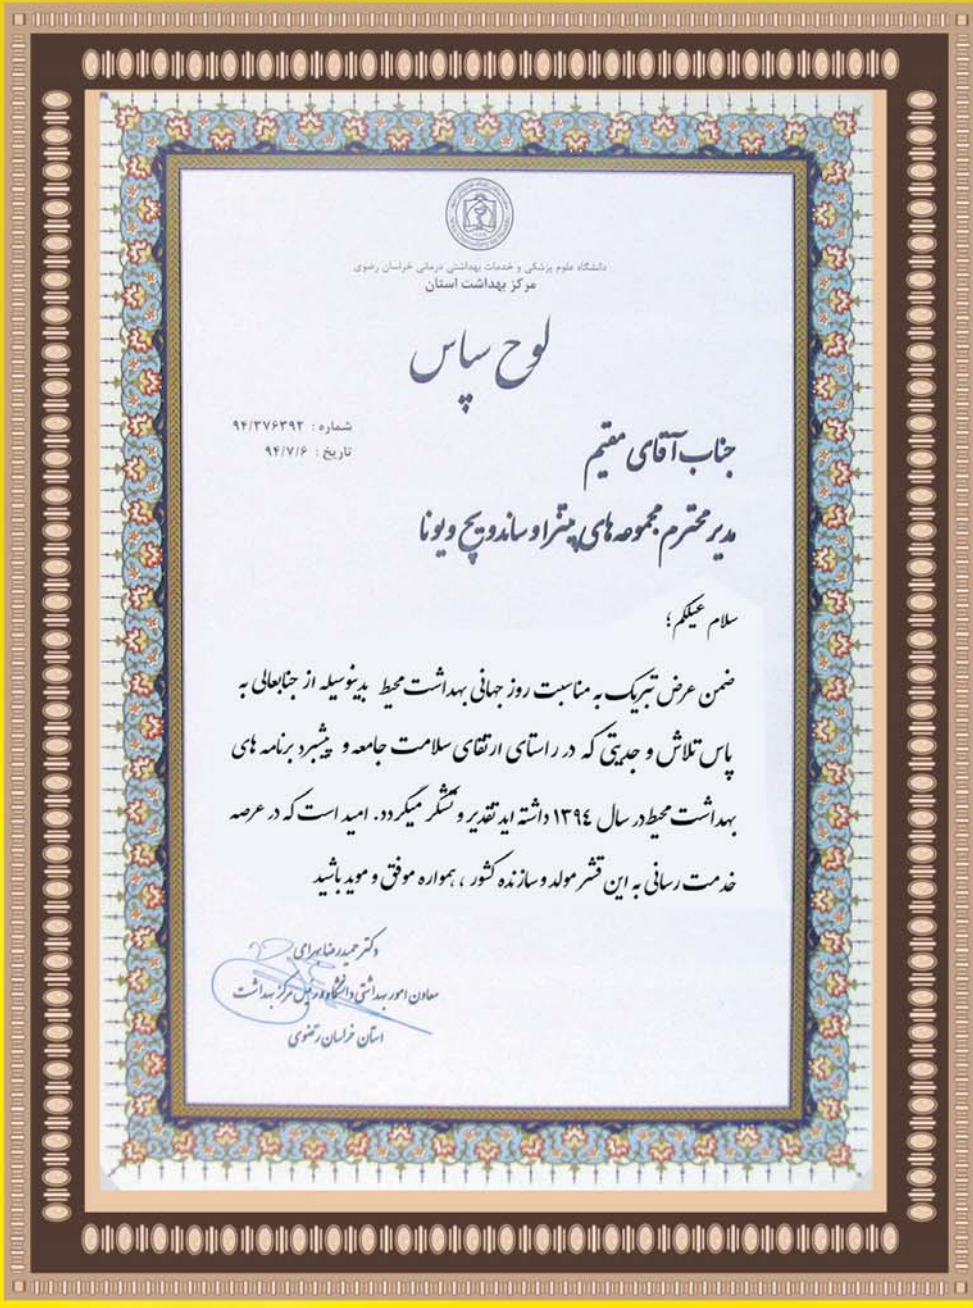 دانشگاه علوم پزشکی و خدمات بهداشتی درمانی خراسان رضوی
مرکز بهداشت استان
لوح سپاس
شماره : ۹۴/۳۷۶۳۹۲
تاریخ : ۹۴/۷/۶
جناب آقای مقیم
مدیر محترم مجموعه های پیتزا و ساندویچ ویونا
سلام علیکم ؛
ضمن عرض تبریک به مناسبت روز جهانی بهداشت محیط بدینوسیله از جنابعالی به
پاس تلاش و جدیتی که در راستای ارتقای سلامت جامعه و پیشبرد برنامه های
بهداشت محیط در سال ۱۳۹٤ داشته اید تقدیر و تشکر میگردد. امید است که در عرصه
خدمت رسانی به این قشر مولد و سازنده کشور ، همواره موفق و موید باشید
دکتر حمیدرضا بهرامی
معاون امور بهداشتی دانشگاه و رئیس مرکز بهداشت
استان خراسان رضوی